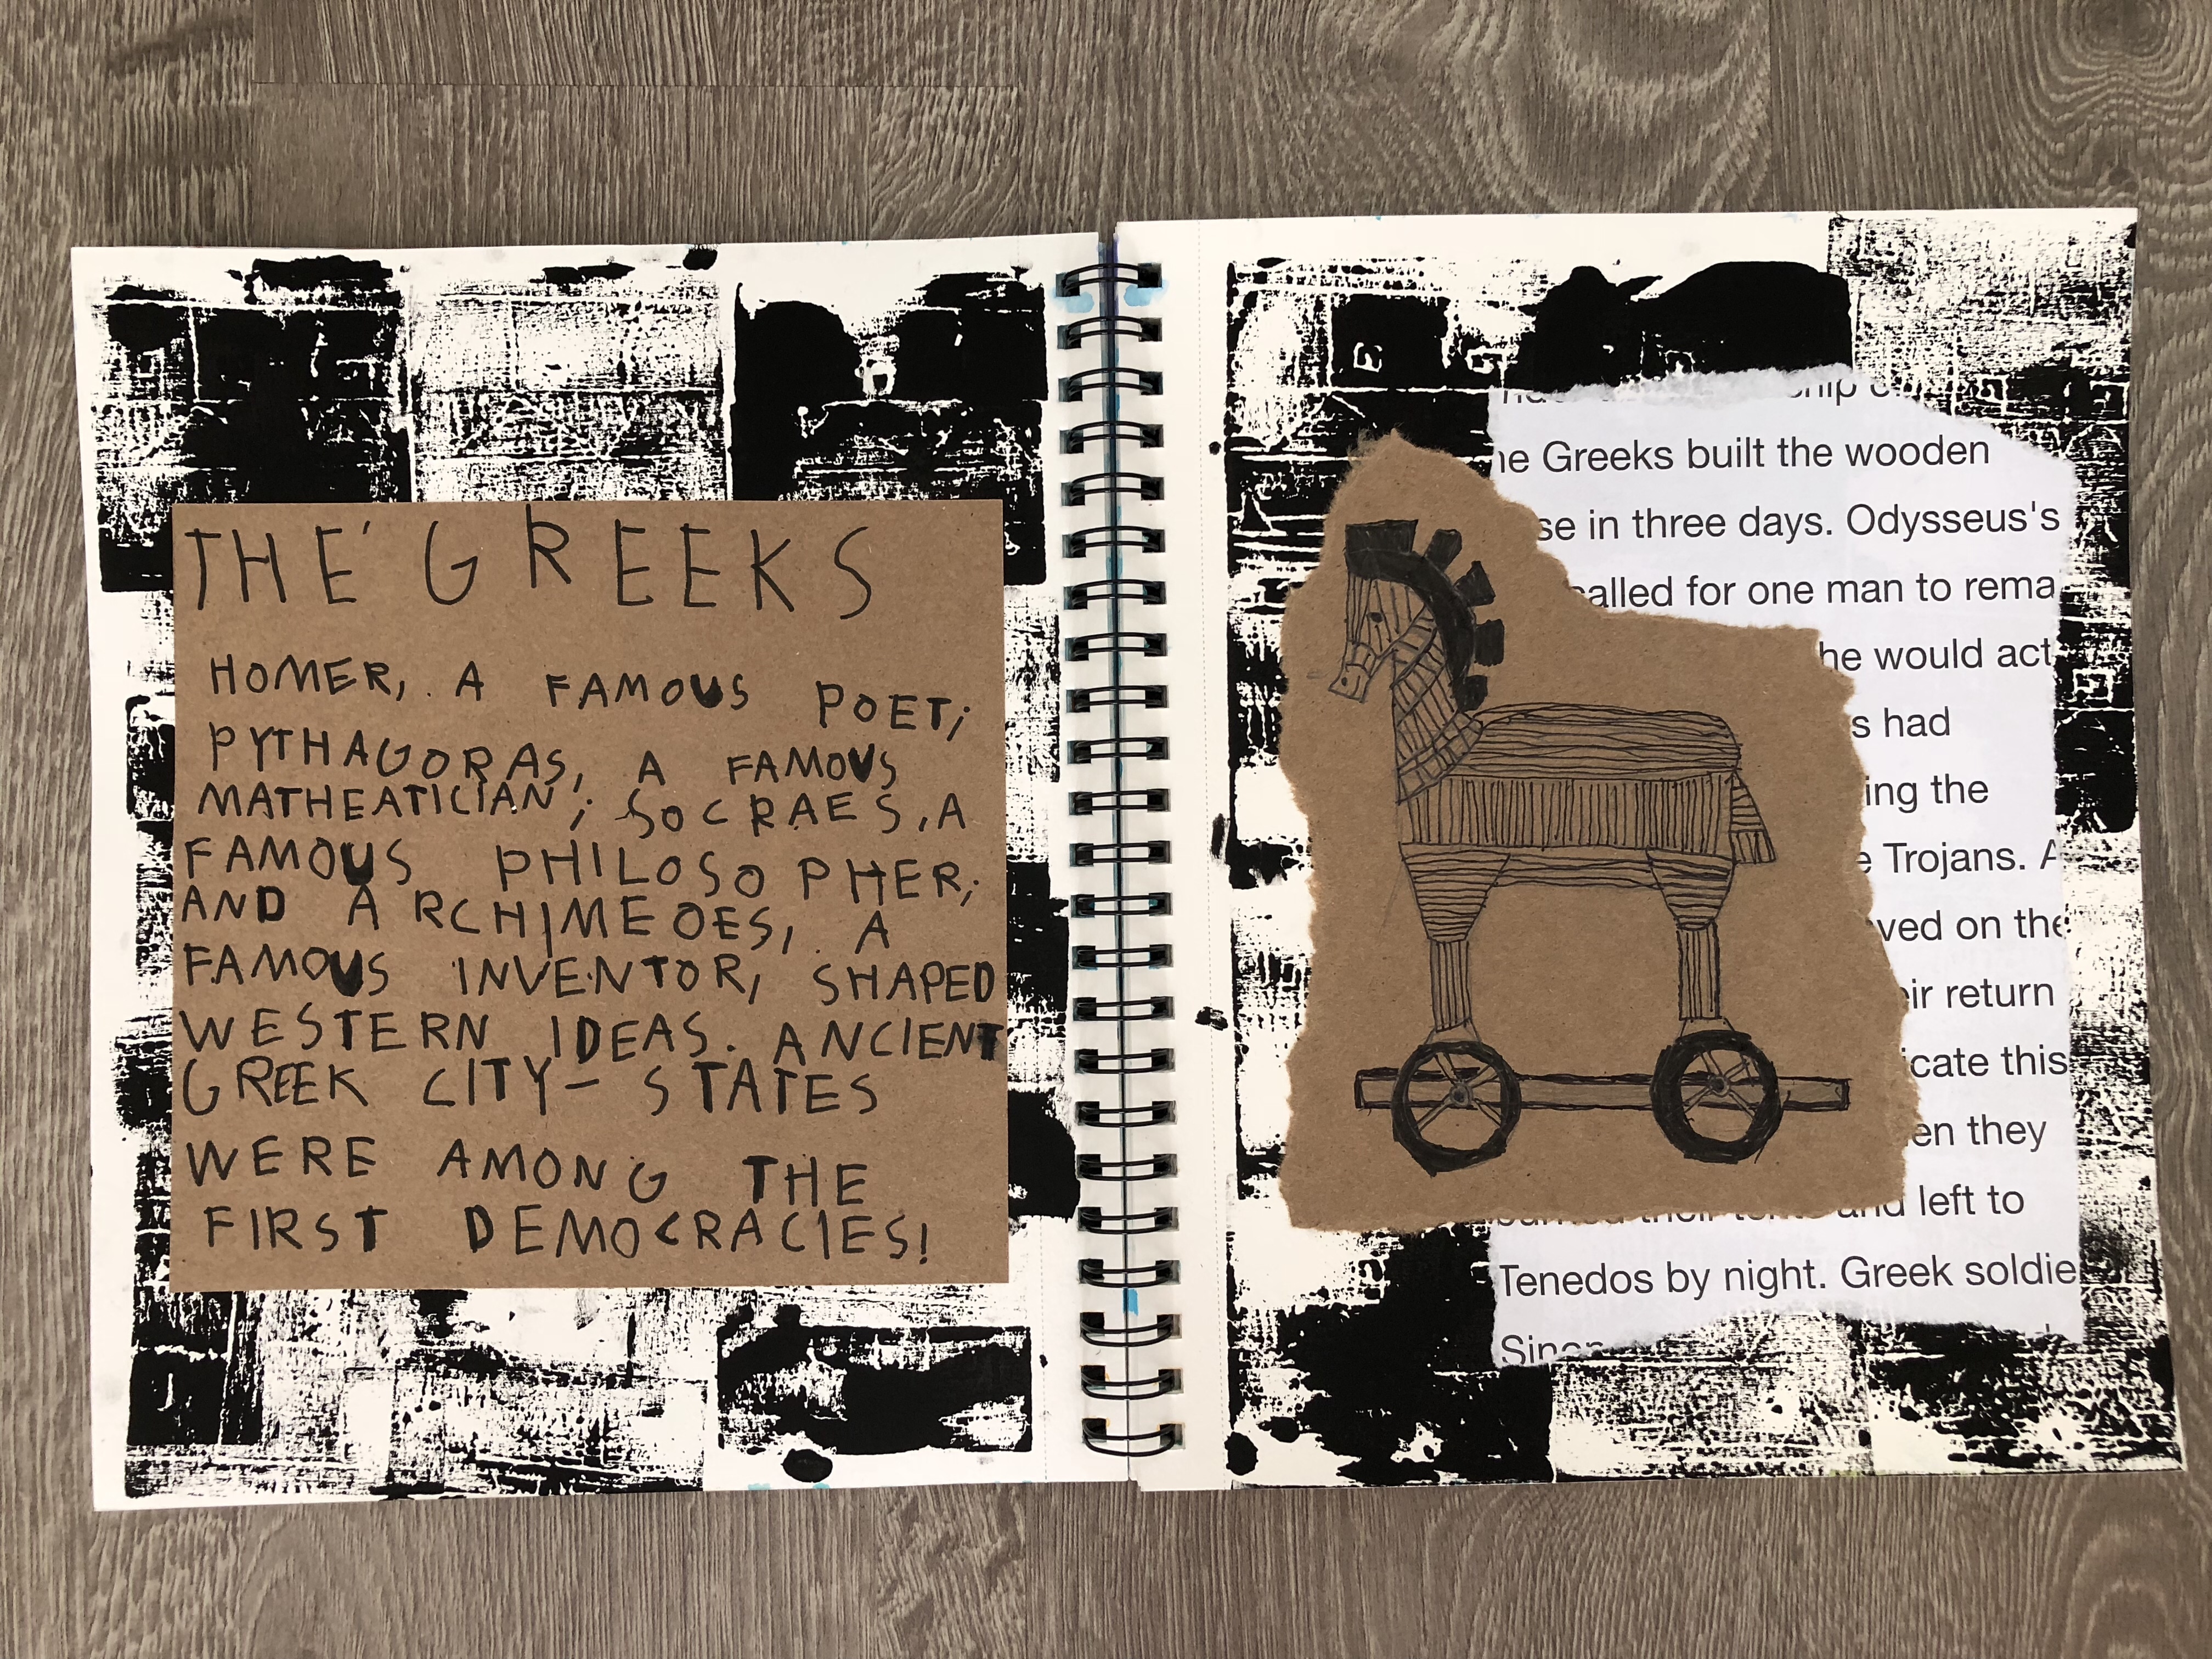 THE GREEKS
HOMER, A FAMOUS POET;
PYTHAGORAS, A FAMOUS
MATHEATICIAN; SOCRAES, A
FAMOUS PHILOSOPHER;
AND ARCHIMEDES, A
FAMOUS INVENTOR, SHAPED
WESTERN IDEAS. ANCIENT
GREEK CITY-STATES
WERE AMONG THE
FIRST DEMOCRACIES!
Greeks built the wooden
se in three days. Odysseus's
alled for one man to rema
he would act
s had
ing the
Trojans. A
ved on the
ir return
cate this
en they
and left to
Tenedos by night. Greek soldie